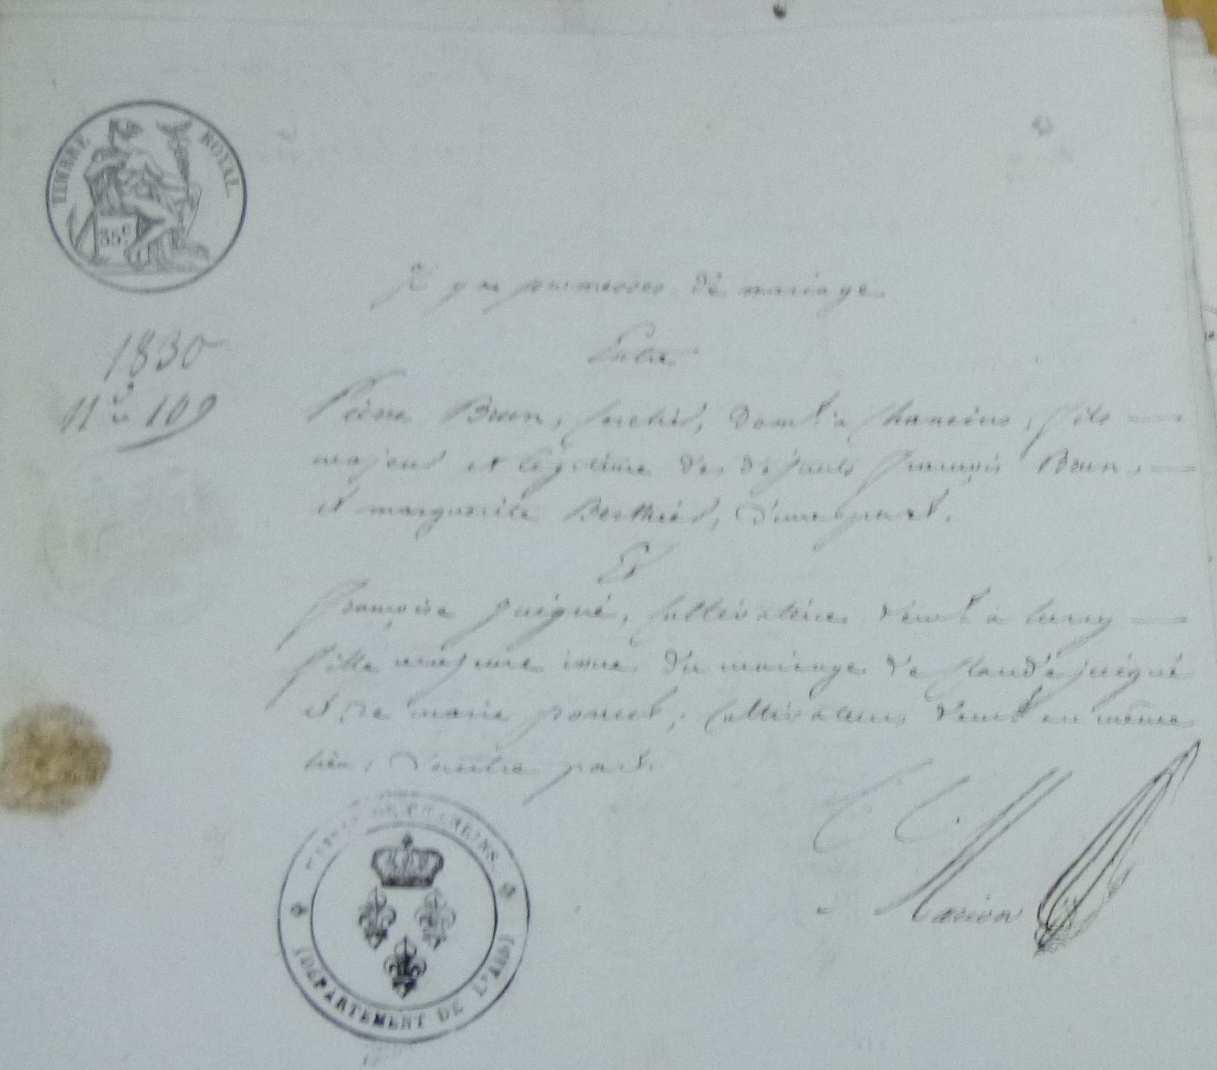 TIMBRE ROYAL
35 c
1830
109
Il y a promesses de mariage
Entre
Pierre Brun, domt à fils
majeur et légitime des défunts françois Brun,
et marguerite Berthier, D'une part.
Et
françoise juigné, Cultivatrice demt à
fille majeure issue du mariage de Claude juigné
et de marie poncet, Cultivateurs demt au même
lieu, D'autre part.
Marion
(DÉPARTEMENT DE L'AIN)